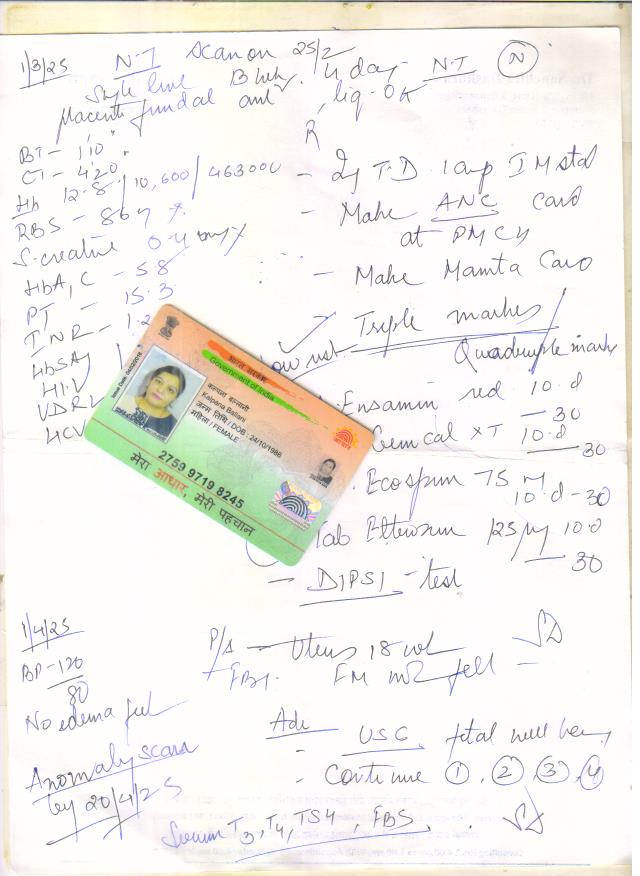 1/3/25 N.T scan on 25/2
Single live 4 day N.T (N)
Placenta fundal ant, liq-OK
R
BT - 1'10"
CT - 4'20"
Hb 12.8/10,600/463000
RBS - 86
S. creatine 0.4 mg%
HbA1C - 5.8
PT - 15.3
INR - 1.2
HbSAg
HIV
VDRL
HCV
- Inj T.D 1 amp IM stat
- Make ANC card
at PMCH
- Make Mamta Card
Triple marker
Quadruple marker
Low risk
Ensamin red 10.d
— 30
Gemcal XT 10.d
— 30
Ecosprin 75 mg
10.d - 30
Tab 125 mg 10.d
— 30
- DIPSI - test
भारत सरकार
Government of India
Issue Date: 04/02/2018
कल्पना बल्लानी
Kalpana Ballani
जन्म तिथि / DOB : 24/10/1986
महिला / FEMALE
2759 9719 8245
मेरा आधार, मेरी पहचान
1/4/25
BP - 120
80
No edema feet
P/A - Uterus 18 wk
FM not felt
Anomaly scan
by 20/4/25
Adv
- USG fetal well being
- Continue 1, 2, 3, 4
Serum T3, T4, TS4, FBS